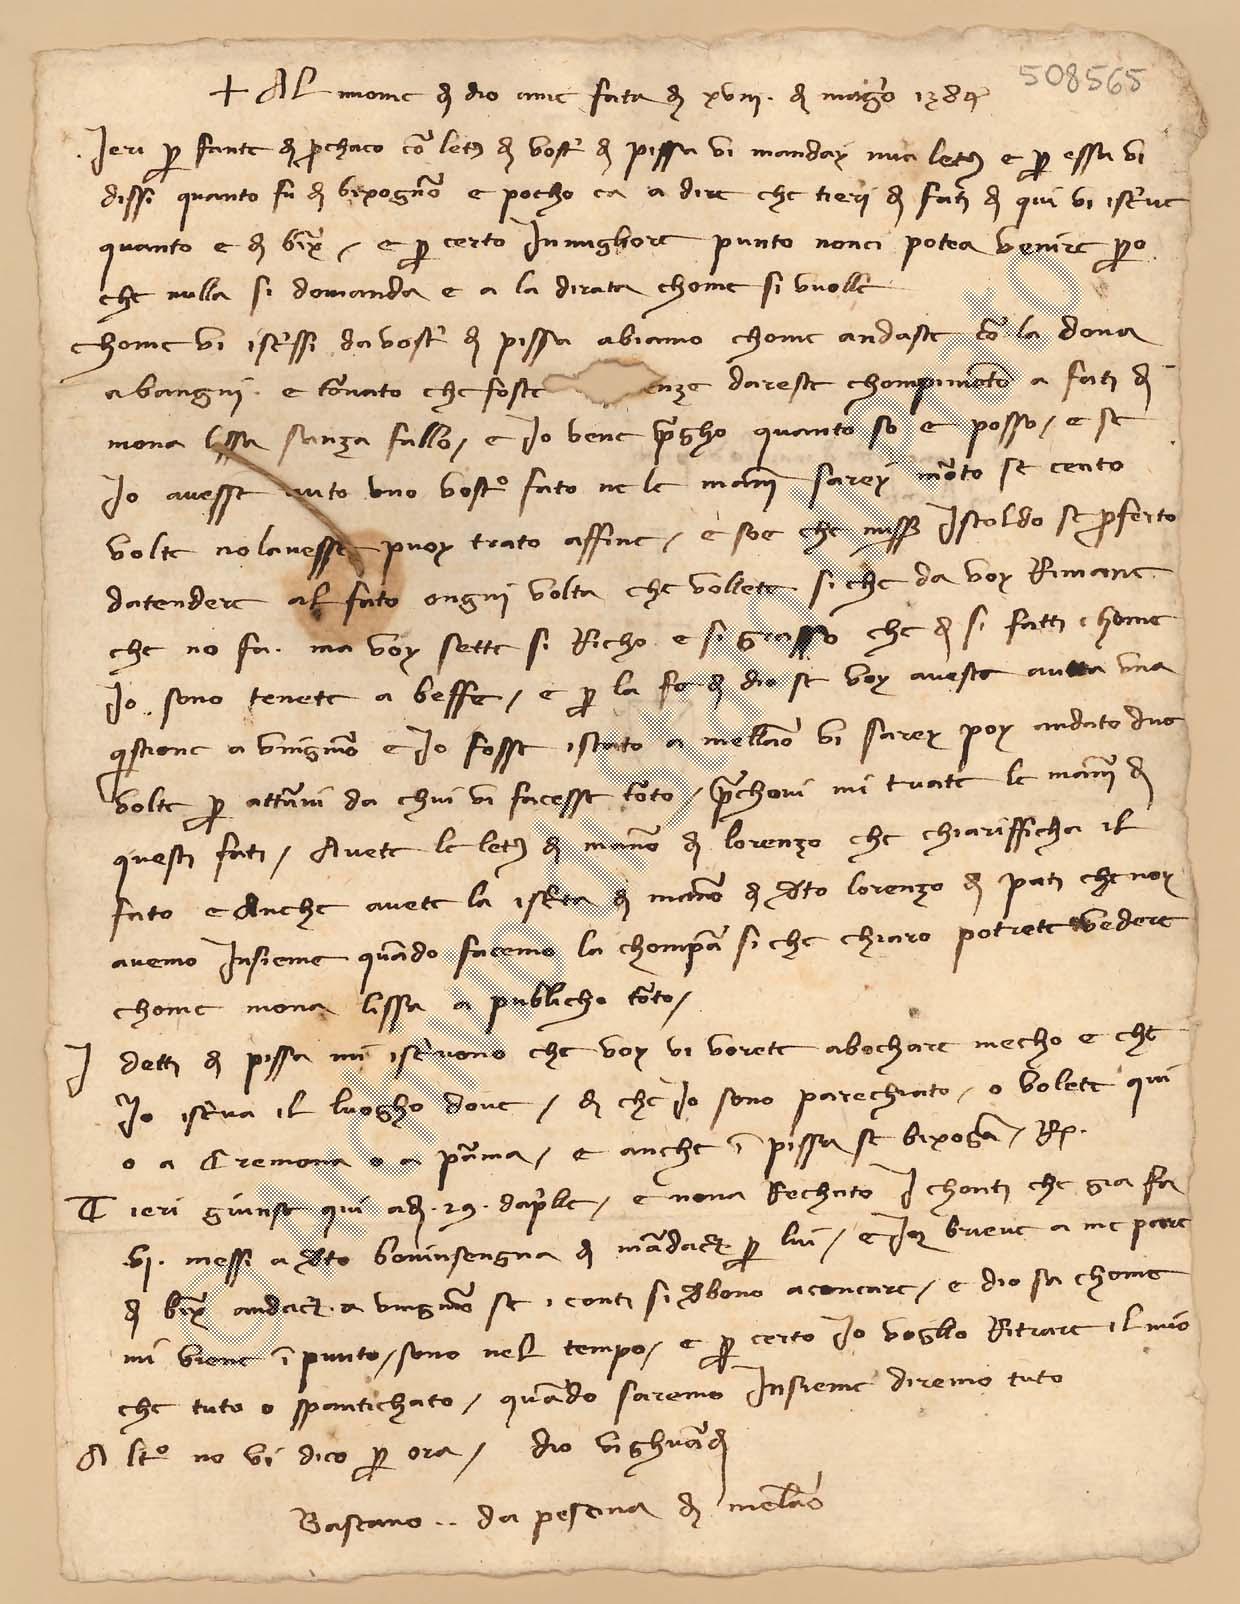 508565
+ Al nome di dio ame fata di XVIII. di magio 138
Ieri per fante di prochaco con letera di vostri di pissa vi manday una letera e per essa vi
dissi quanto fu di bixogno e pocho ca a dire che tieri di fati di qui vi iscrive
quanto e di bixo / e per certo In mighore punto nonci potea venire pero
che nulla si domanda e a la dirata chome si vuolle
Chome vi iscrissi da vostri di pissa abiamo chome andaste con la dona
a bangni . e tornato che foste enze dareste chompimento a fati di
mona lissa sanza fallo / e Io vene pregho quanto so e posso / e se
Io avesse auto uno vostro fato ne le mani sarey morto se cento
volte no lavesse puoy trato affine / e soe che Isoldo se proferto
datendere al fato ongni volta che vollete si che da voy Rimane
che no fa . ma voy sette si Richo e si grasso che di si fatti chome
Io sono tenete a beffe / e per la fe di dio se voy aveste auta una
questione a vingnone e Io fosse istato a mellano vi sarey poy andato due
volte per attarvi da chui vi facesse torto / preghovi mi trate le mani di
questi fati / Avete le letere di mano di lorenzo che chiariffícha il
fato e Anche avete la iscrita di mano di deto lorenzo di pati che noy
avemo Insieme quando facemo la chompa si che chiaro potrete vedere
chome mona lissa a publicho torto /
I detti di pissa mi iscrivono che voy vi vorete abochare mecho e che
Io iscriva il luogho dove / di che Io sono parechiato / o volete qui
o a Cremona o a parma / e anche in pissa se bixogna / R.
T ieri giunse qui adi . 29 . daprile / e nona Rechato I chonti che gia fa
.VI. messi a deto boninsengna di mandare per lui / e brieve a me pare
di bixo andare a vingnone se i conti si debono aconcare / e dio sa chome
mi viene in punto / sono nel tempo / e per certo Io voglio Ritrare il mio
che tuto o spantichato / quando saremo Insieme diremo tuto
Altro no vi dico per ora / dio vi ghuardi
Bascano .. da pescina di melano